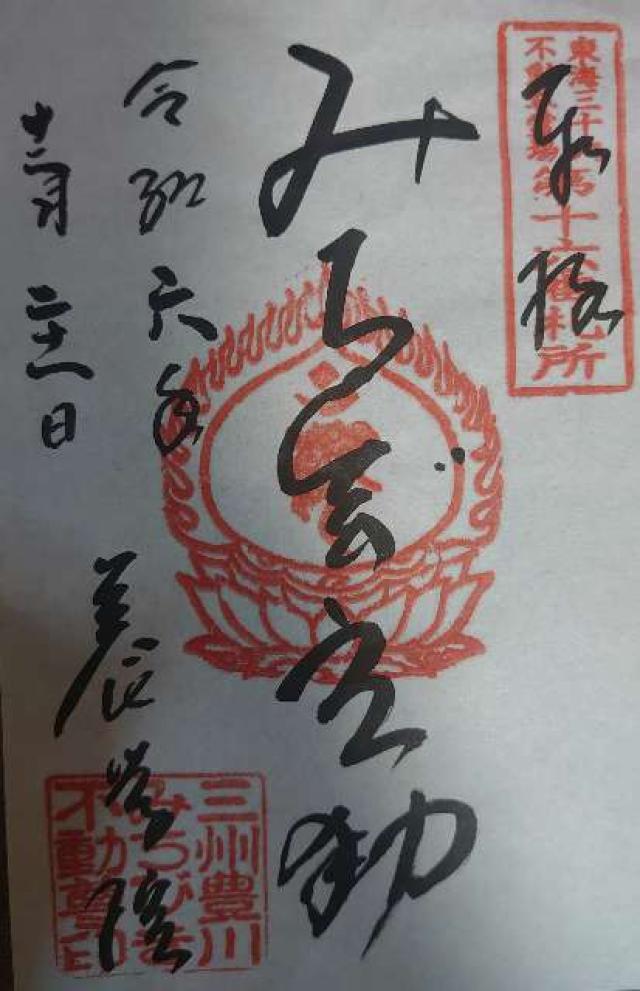 奉拝
東海三十六
不動尊霊場
第十六番札所
みちびき不動
令和六年
十二月二十一日
養学院
三州豊川
みちびき
不動尊印